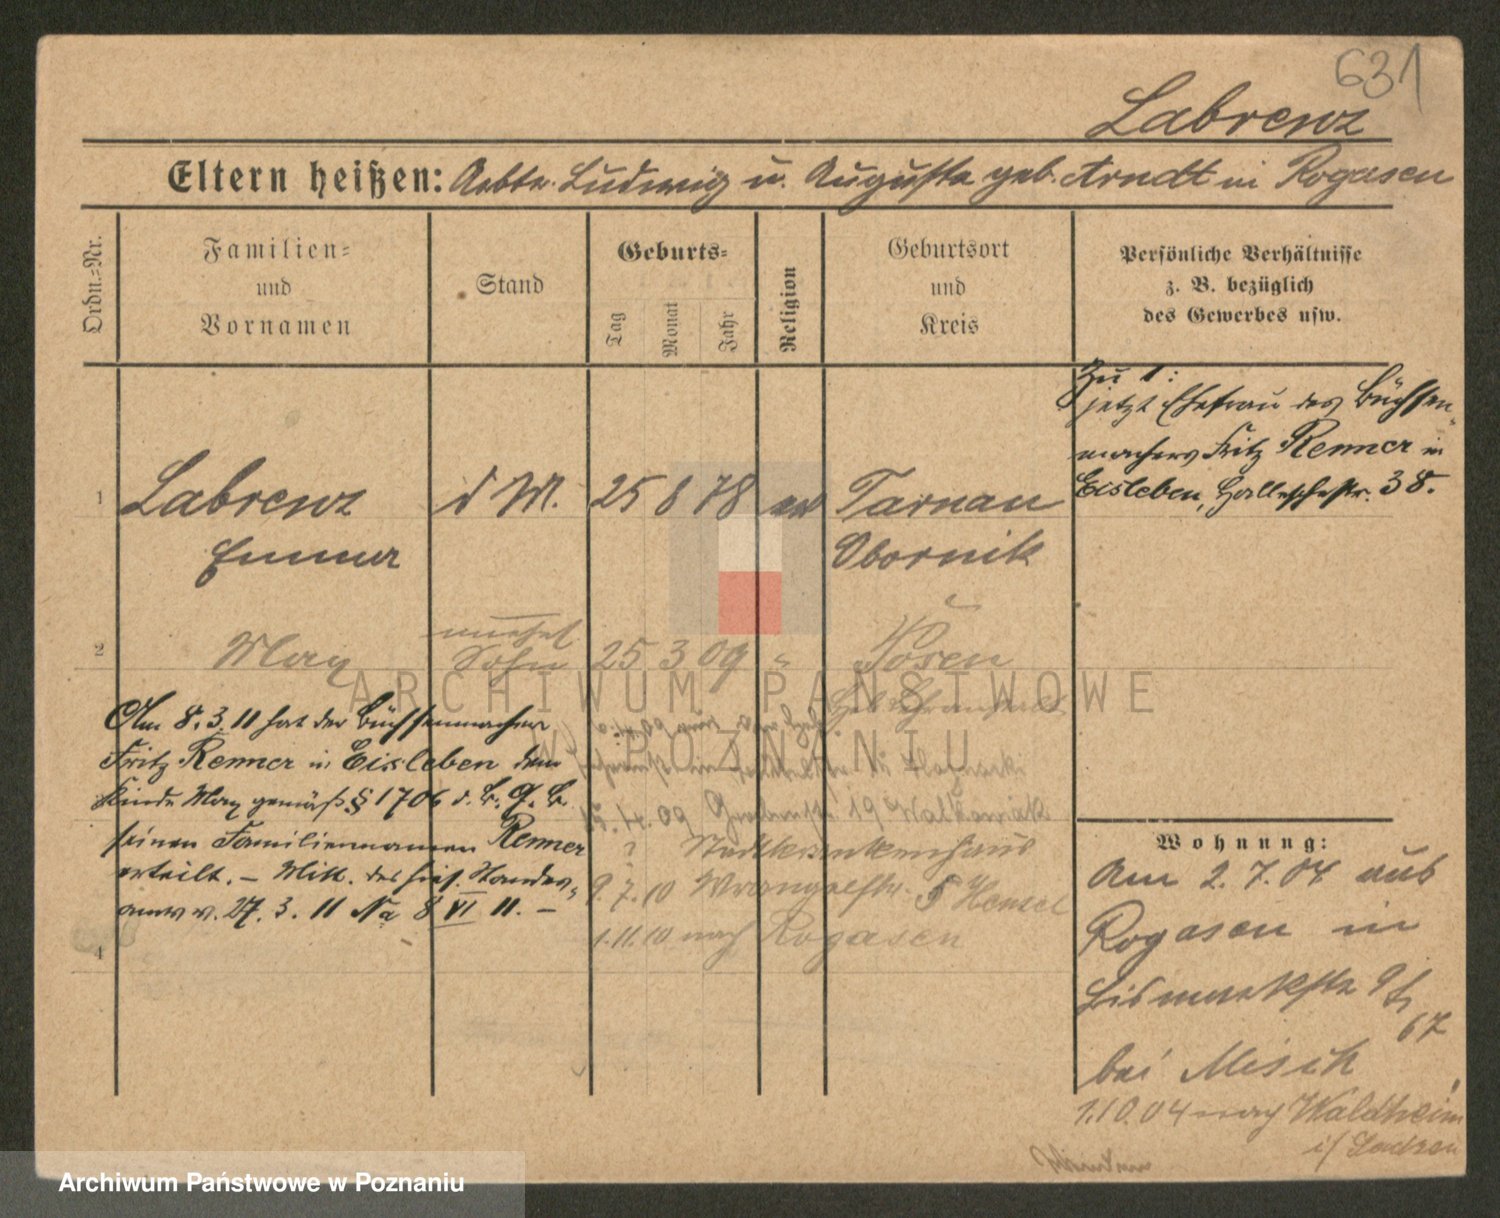 631
Labrenz
Eltern heißen: Arbtr. Ludwig u. Auguste geb. Arndt in Rogasen
Ordn.=Nr.
Familien=
und
Vornamen
Stand
Geburts=
Tag
Monat
Jahr
Religion
Geburtsort
und
Kreis
Persönliche Verhältnisse
z. B. bezüglich
des Gewerbes usw.
Zu 1:
jetzt Ehefrau des Büchsen-
machers Fritz Renner in
Eisleben, Halleschestr. 38.
1 Labrenz d M. 25 8 78 ev Tarnau
Emma Obornik
unehel
2 Max Sohn 25 3 09 " Posen
Am 8. 3. 11 hat der Büchsenmacher
Fritz Renner in Eisleben dem
Kinde Max gemäß § 1706 d. B. G. B.
seinen Familiennamen Renner
erteilt. – Mitt. des
v. 27. 3. 11 Na 8 VI 11. –
4
4. 09 19 Walkowiak
? Stadtkrankenhaus
9. 7. 10 Wrangelstr. 5 Hensel
1. 11. 10 nach Rogasen
Wohnung:
Am 2. 7. 04 aus
Rogasen in
Bismarckstr 9
67
bei Misch
1.10.04 nach Waldheim
i/ Sachsen
ARCHIWUM PAŃSTWOWE
W POZNANIU
Archiwum Państwowe w Poznaniu